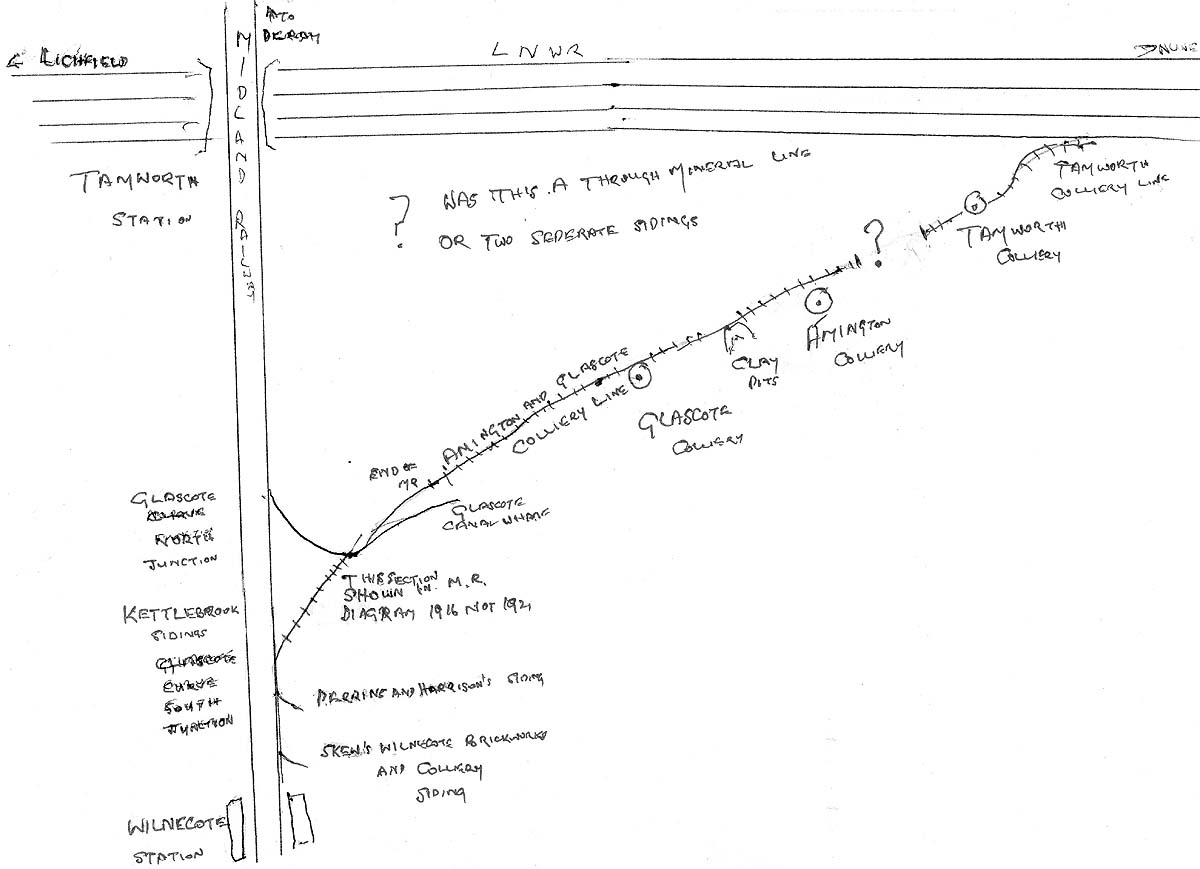 TO
DERBY
LICHFIELD
LNWR
NUNE
MIDLAND RAILWAY
TAMWORTH
STATION
? WAS THIS A THROUGH MINERAL LINE
OR TWO SEDERATE SIDINGS
TAMWORTH
COLLIERY LINE
TAMWORTH
COLLIERY
?
AMINGTON
COLLIERY
CLAY
PITS
AMINGTON AND GLASCOTE
COLLIERY LINE
GLASCOTE
COLLIERY
END OF
MR
GLASCOTE
CANAL WHARF
GLASCOTE
NORTH
JUNCTION
THIS SECTION
SHOWN IN M.R.
DIAGRAM 1916 NOT 1921
KETTLEBROOK
SIDINGS
GLASCOTE
CURVE
SOUTH
JUNCTION
PERRINS AND HARRISON'S SIDING
SKEW'S WILNECOTE BRICKWORKS
AND COLLIERY
SIDING
WILNECOTE
STATION